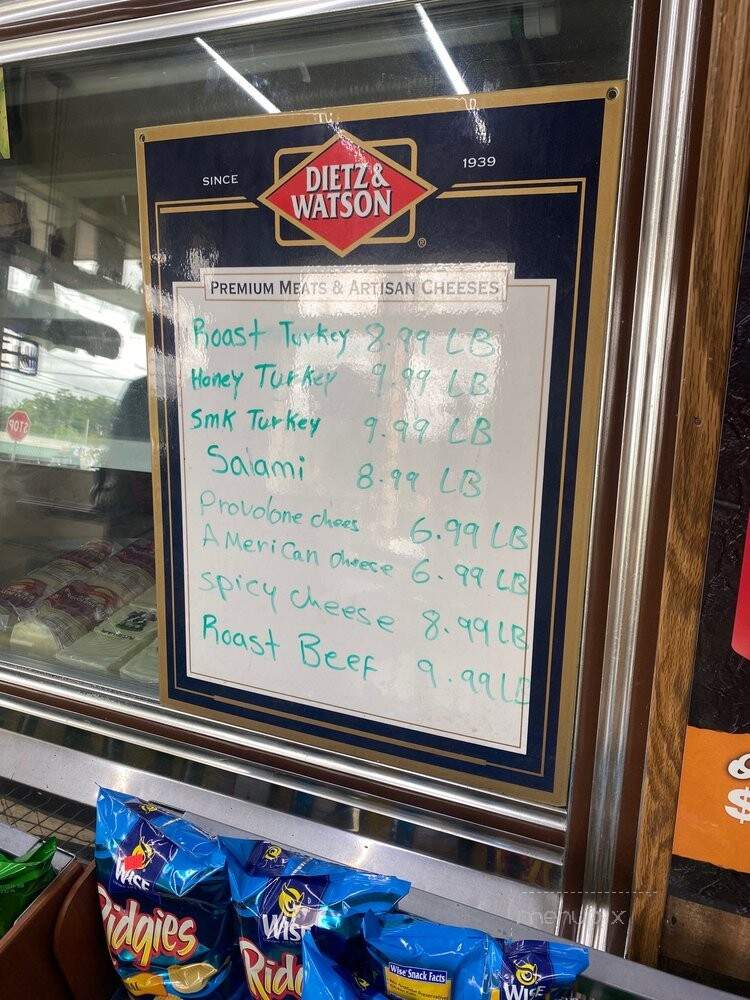 SINCE
1939
DIETZ &
WATSON
®
PREMIUM MEATS & ARTISAN CHEESES
Roast Turkey 8.99 LB
Honey Turkey 9.99 LB
SMK Turkey 9.99 LB
Salami 8.99 LB
Provolone chees 6.99 LB
AMERICan cheese 6.99 LB
Spicy cheese 8.99 LB
Roast Beef 9.99 LB
STOP
&
$
WISE
Ridgies
WISE
Rid
Wise Snack Facts
WISE
menupix